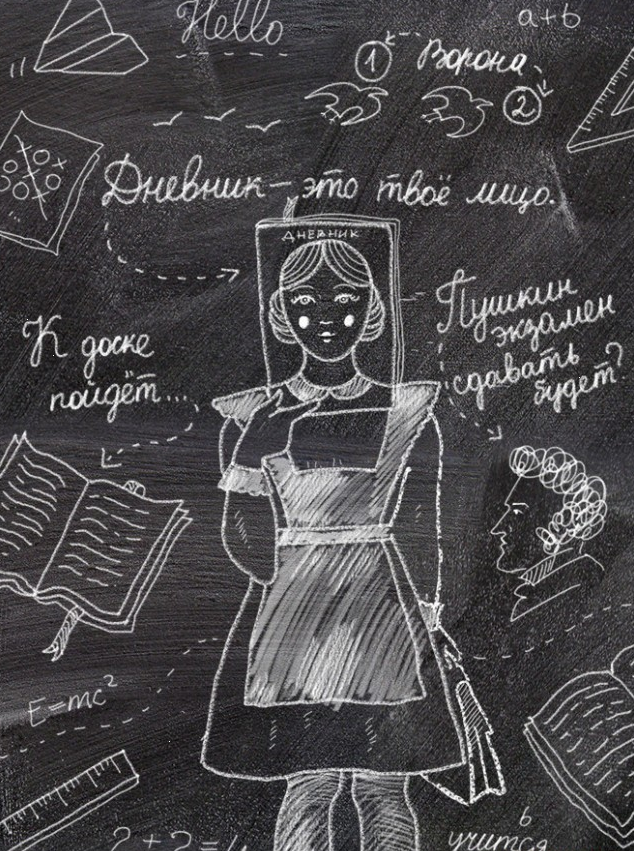 Hello
a+b
1
Ворона
2
Дневник — это твоё лицо.
ДНЕВНИК
Пушкин
экзамен
сдавать
будет?
К доске
пойдёт...
E=mc²
2+2=4
ь
учится